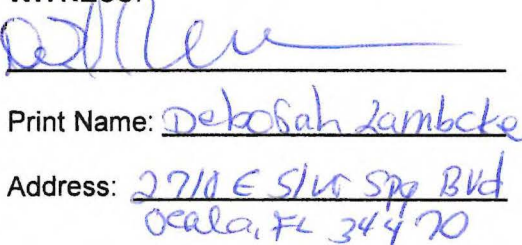 WITNESS:
Print Name: Deborah Lambcke
Address: 2710 E Slvr Spg Blvd
Ocala, FL 34470